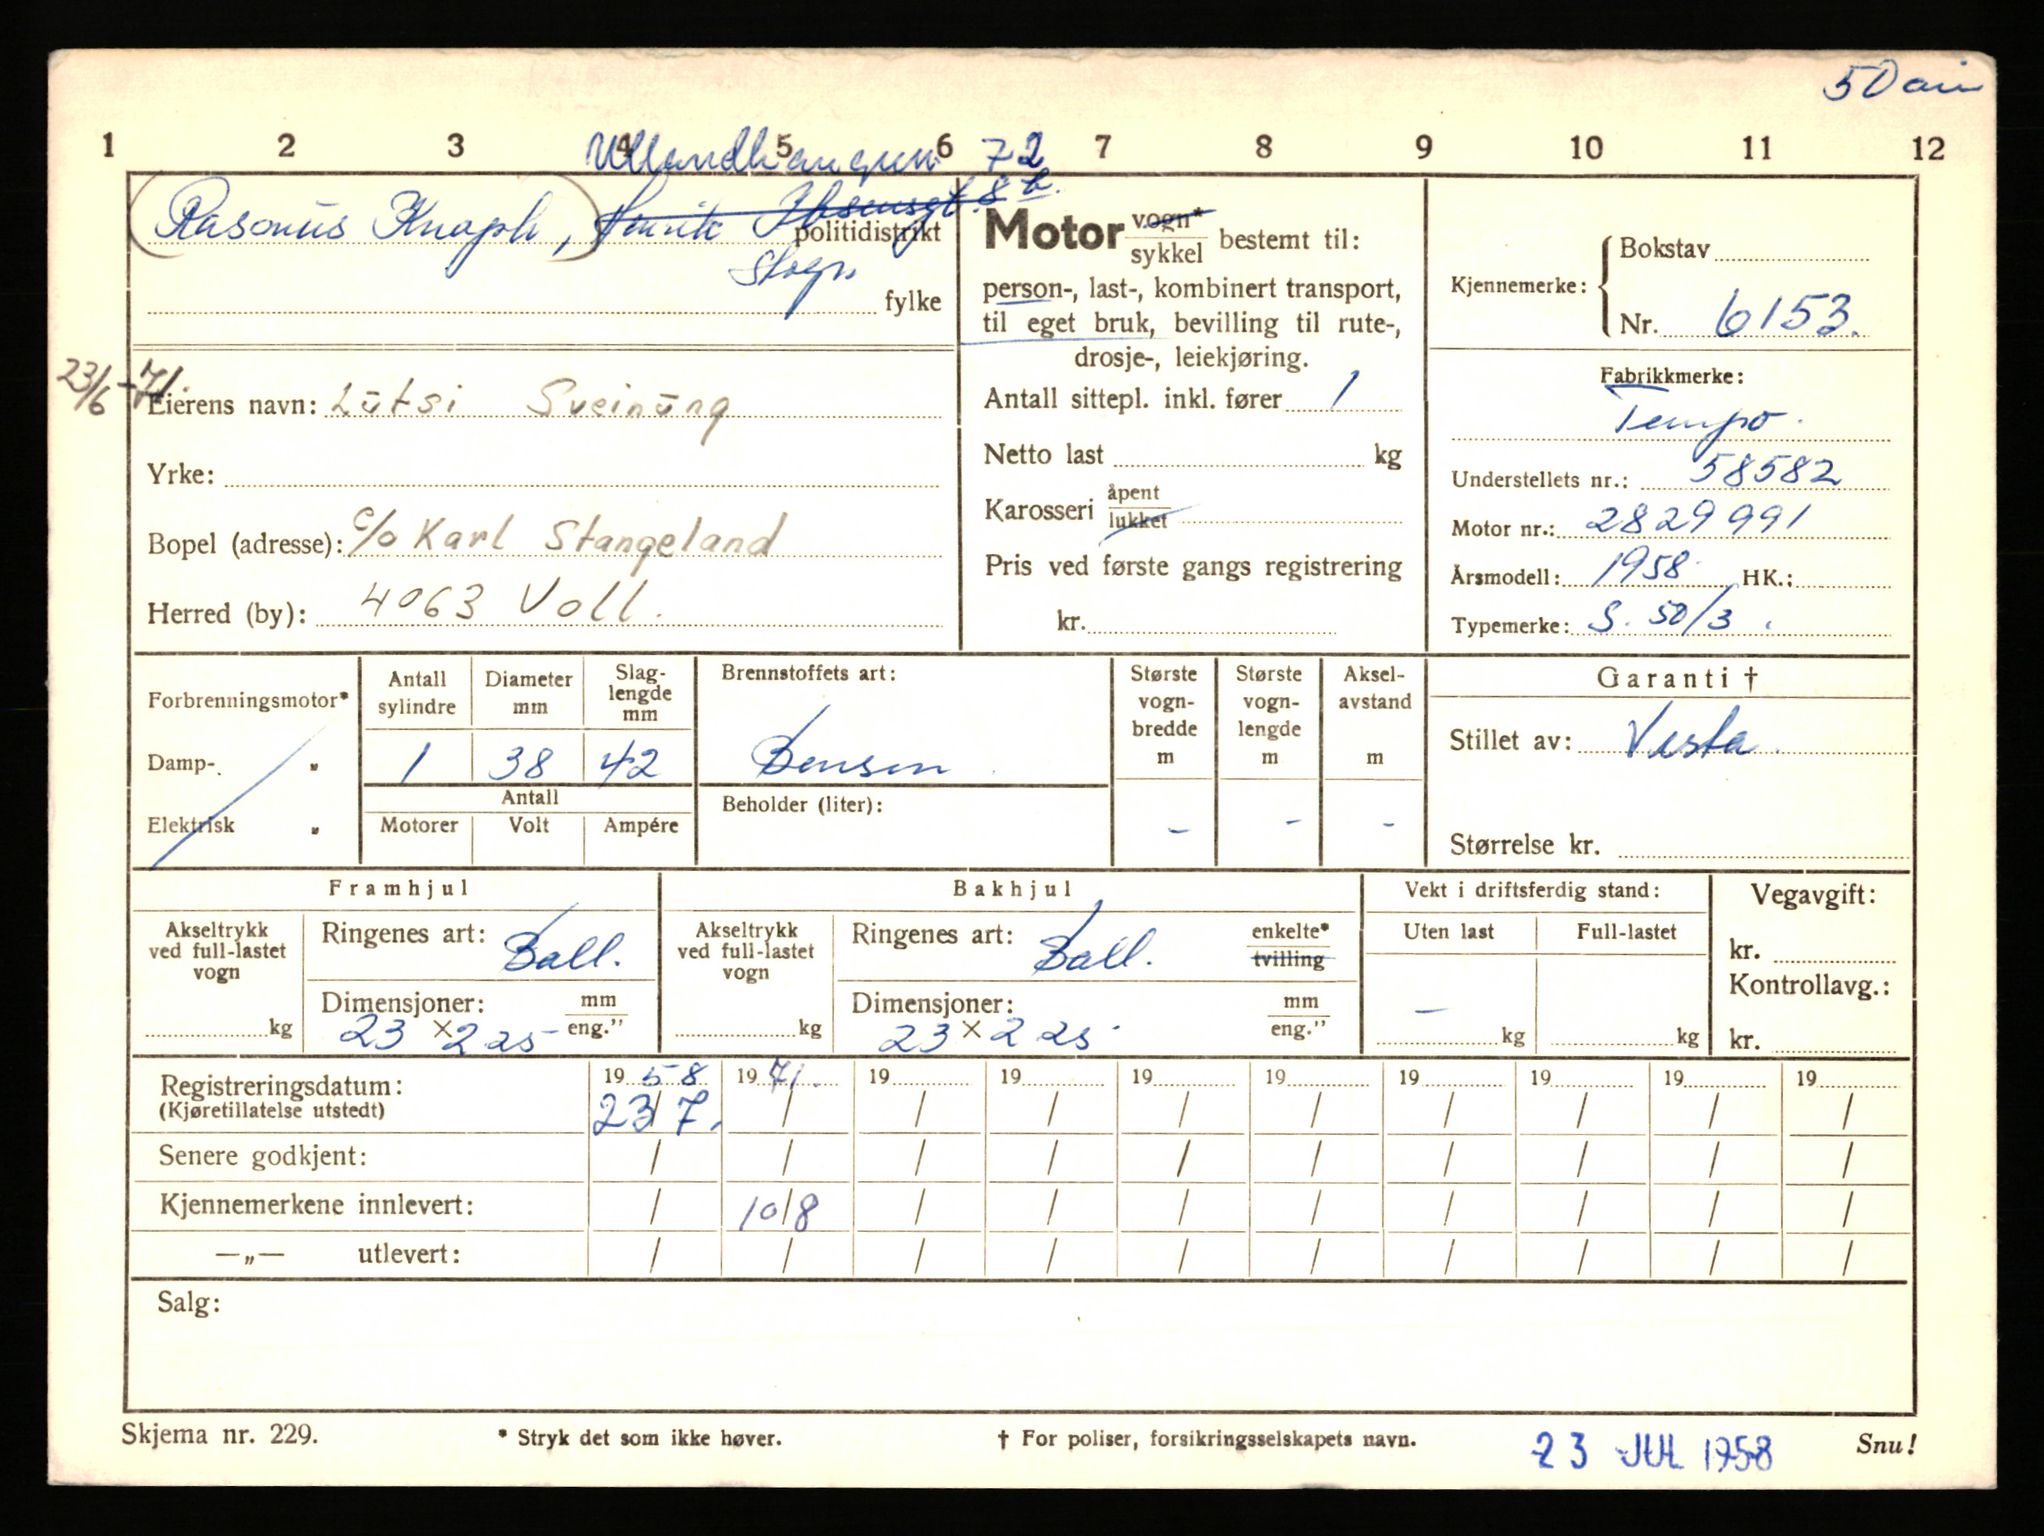 50
1 2 3 4 5 6 7 8 9 10 11 12
Ullandhaugvn. 72
Rasmus Knaph, Henrik Ibsensgt. 8 b.
politidistrikt
Stvgr.
fylke
23/6-71.
Eierens navn: Lutsi Sveinung
Yrke:
Bopel (adresse): c/o Karl Stangeland
Herred (by): 4063 Voll.
Motor vogn* sykkel bestemt til:
person-, last-, kombinert transport,
til eget bruk, bevilling til rute-,
drosje-, leiekjøring.
Antall sittepl. inkl. fører 1
Netto last kg
Karosseri åpent lukket
Pris ved første gangs registrering
kr.
Kjennemerke: Bokstav
Nr. 6153.
Fabrikkmerke:
Tempo.
Understellets nr.: 58582
Motor nr.: 2829991
Årsmodell: 1958 HK.:
Typemerke: S. 50/3.
Forbrenningsmotor*
Damp- "
Elektrisk "
Antall sylindre Diameter mm Slaglengde mm
1 38 42
Antall
Motorer Volt Ampére
Brennstoffets art:
Bensin
Beholder (liter):
Største vognbredde m
-
Største vognlengde m
-
Akselavstand m
-
Garanti †
Stillet av: Vesta.
Størrelse kr.
Framhjul
Akseltrykk ved full-lastet vogn
kg
Ringenes art: Ball.
Dimensjoner: mm eng."
23 x 2 25
Bakhjul
Akseltrykk ved full-lastet vogn
kg
Ringenes art: Ball. enkelte* tvilling
Dimensjoner: mm eng."
23 x 2 25
Vekt i driftsferdig stand:
Uten last Full-lastet
-
kg kg
Vegavgift:
kr.
Kontrollavg.:
kr.
Registreringsdatum: 19 58 19 71. 19 19 19 19 19 19 19 19
(Kjøretillatelse utstedt) 23/7. / / / / / / / / /
Senere godkjent: / / / / / / / / / /
Kjennemerkene innlevert: / 10/8 / / / / / / / /
—„— utlevert: / / / / / / / / / /
Salg:
Skjema nr. 229. * Stryk det som ikke høver. † For poliser, forsikringsselskapets navn. 23 JUL 1958 Snu!